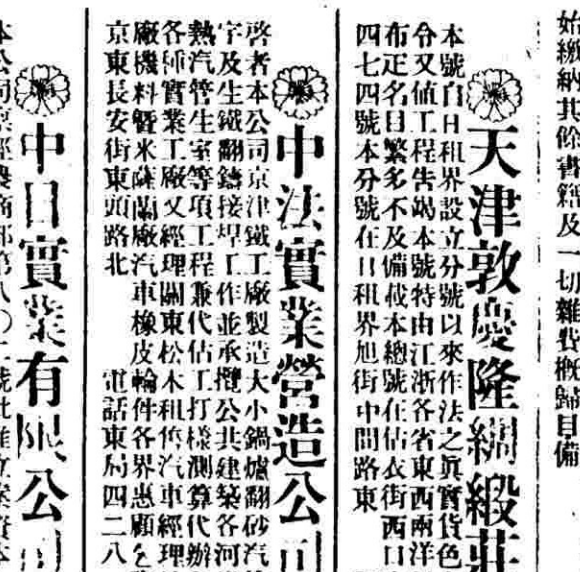 始繳納其餘書籍及一切雜費概歸自備
天津敦慶隆綢緞莊
本號自日租界設立分號以來作法之真實貨色
今又値工程告竣本號特由江浙各省東西兩洋
布疋名目繁多不及備載本總號在估衣街西口
四七四號本分號在日租界旭街中間路東
中法實業營造公司
啓者本公司京津鐵工廠製造大小鍋爐翻砂汽
字及生鐵翻鑄接焊工作並承攬公共建築各河
熱汽管生室等項工程兼代估工打樣測算代辦
各種實業工廠又經理關東松木租售汽車經理
廠機料暨米薩蘭廠汽車橡皮輪件各界惠顧
京東長安街東頭路北 電話東局四二八
中日實業有限公司
本公司稟經農商部第八〇二號批准立案資本